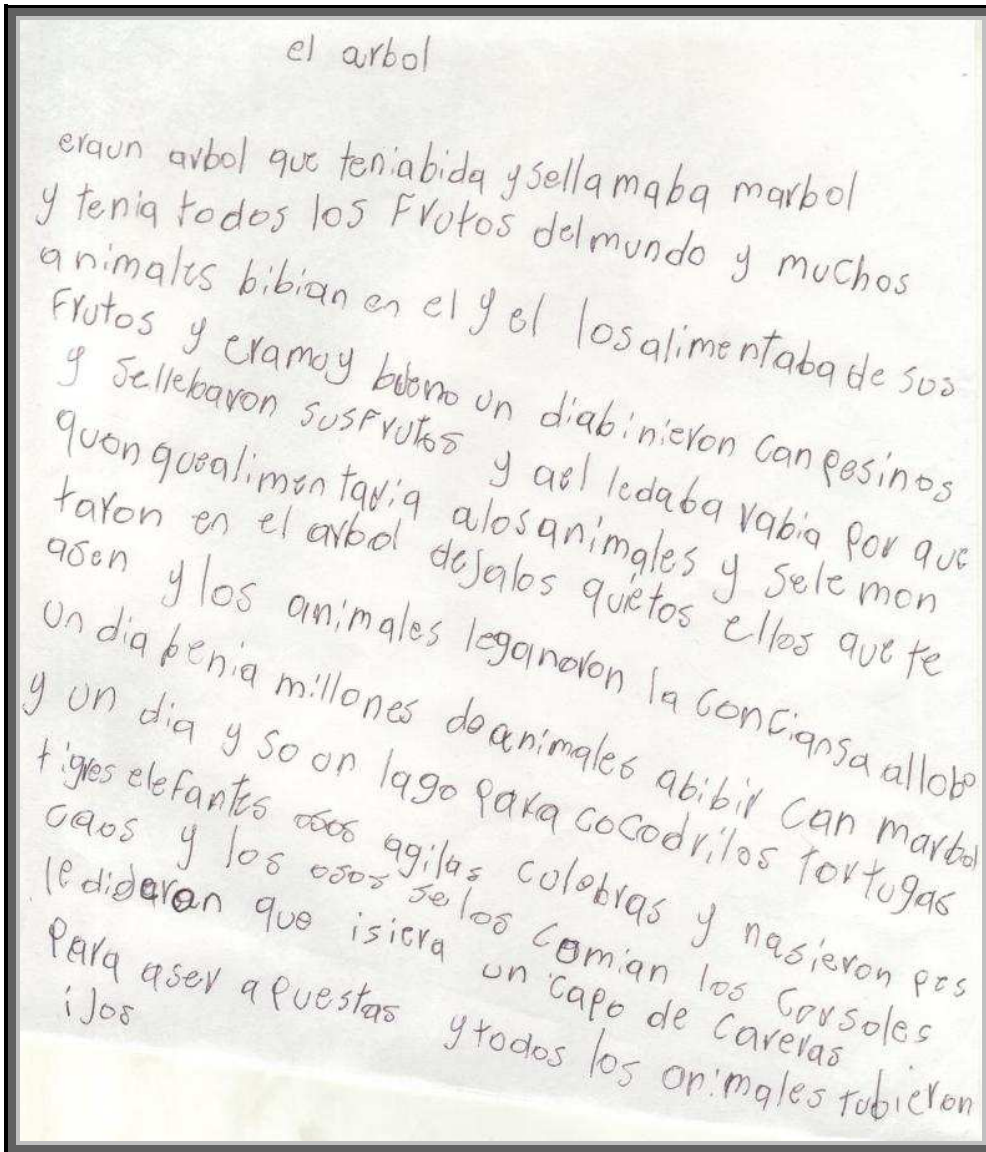 el arbol
eraun arbol que teniabida y sellamaba marbol
y tenia todos los Frutos delmundo y muchos
animales bibian en el y el losalimentaba de sus
Frutos y eramoy bueno un diabinieron canpesinos
y sellebaron susFrutos y ael ledaba rabia por que
quon quealimentaria alosanimales y sele mon
taron en el arbol dejalos quietos ellos que te
asen y los animales leganoron la conciansa allobo
un dia benia millones deanimales abibir can marbol
y un dia y so on lago para cocodrilos tortugas
tigres elefantes osos agilas colebras y nasieron pes
caos y los osos se los comian los corsoles
ledigeron que isiera un capo de careras
para aser apuestas y todos los animales tubieron
ijos